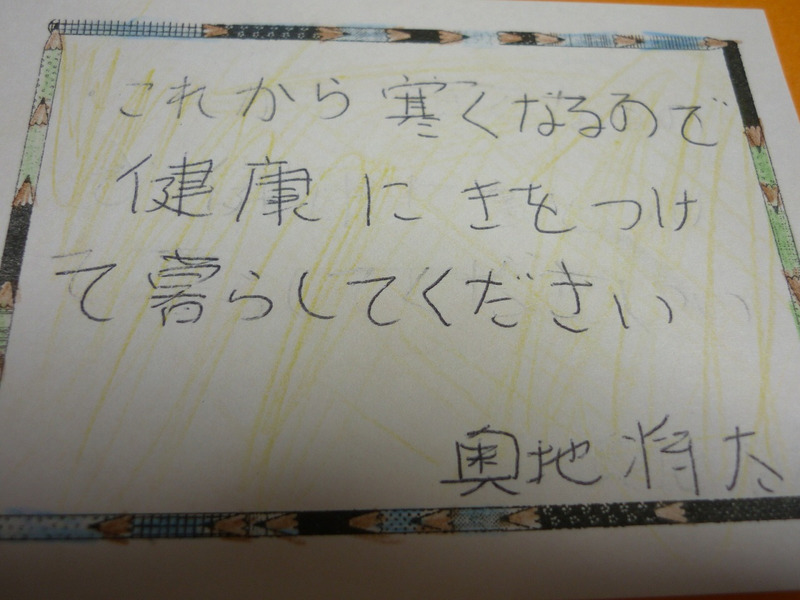 これから寒くなるので
健康にきをつけ
て暮らしてください
奥地将太